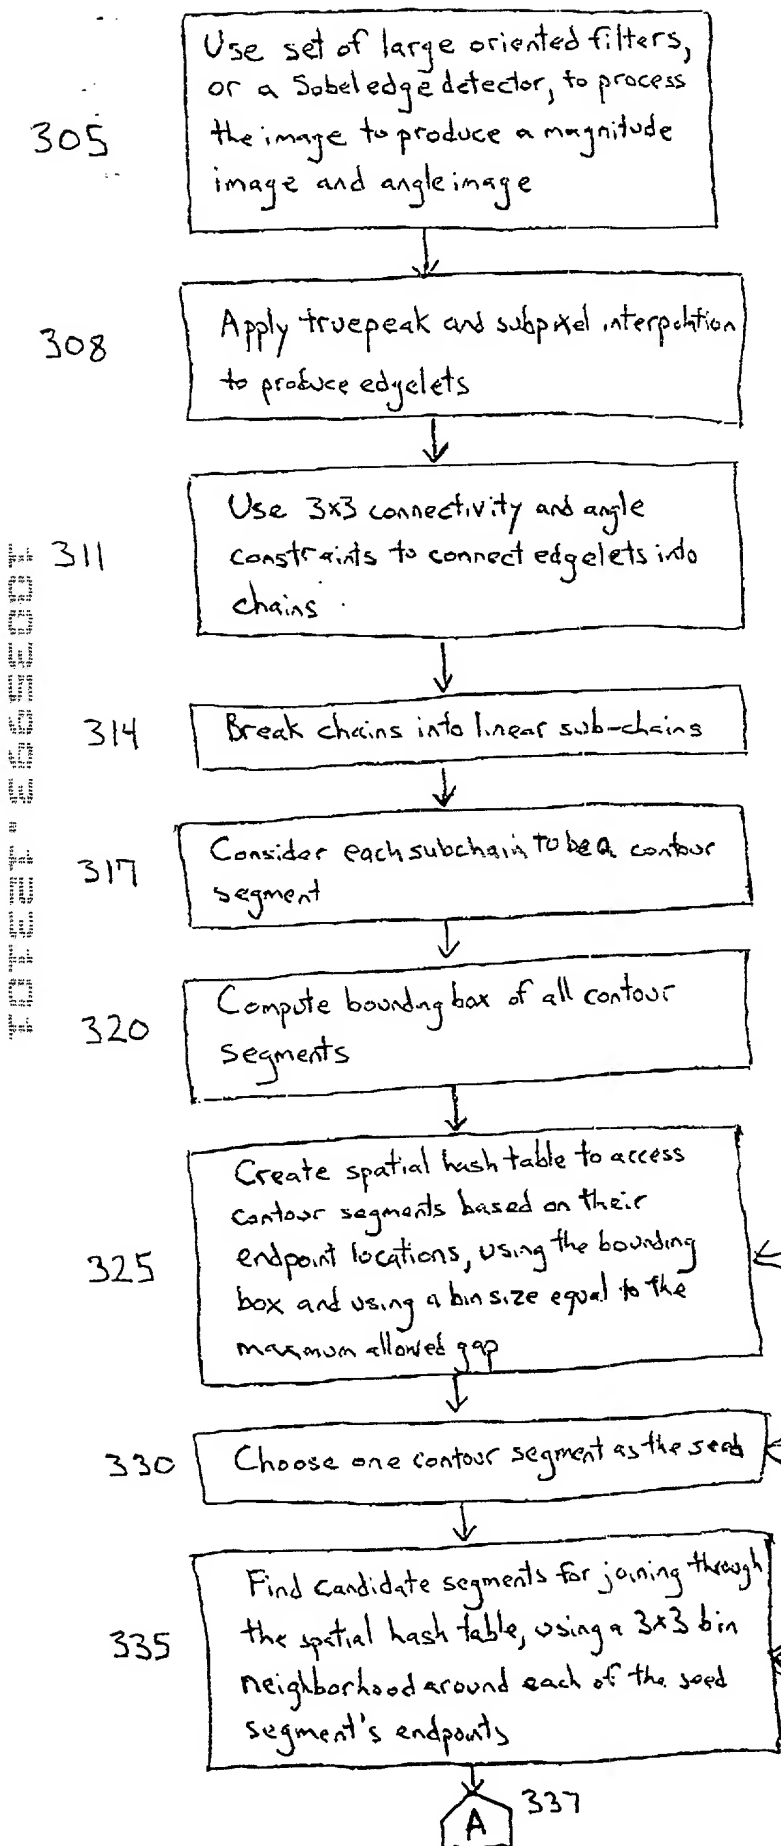 305
Use set of large oriented filters,
or a Sobel edge detector, to process
the image to produce a magnitude
image and angle image
308
Apply truepeak and subpixel interpolation
to produce edgelets
311
Use 3x3 connectivity and angle
constraints to connect edgelets into
chains.
314
Break chains into linear sub-chains
317
Consider each subchain to be a contour
segment
320
Compute bounding box of all contour
segments
325
Create spatial hash table to access
contour segments based on their
endpoint locations, using the bounding
box and using a bin size equal to the
maximum allowed gap
330
Choose one contour segment as the seed
335
Find candidate segments for joining through
the spatial hash table, using a 3x3 bin
neighborhood around each of the seed
segment's endpoints
337
A